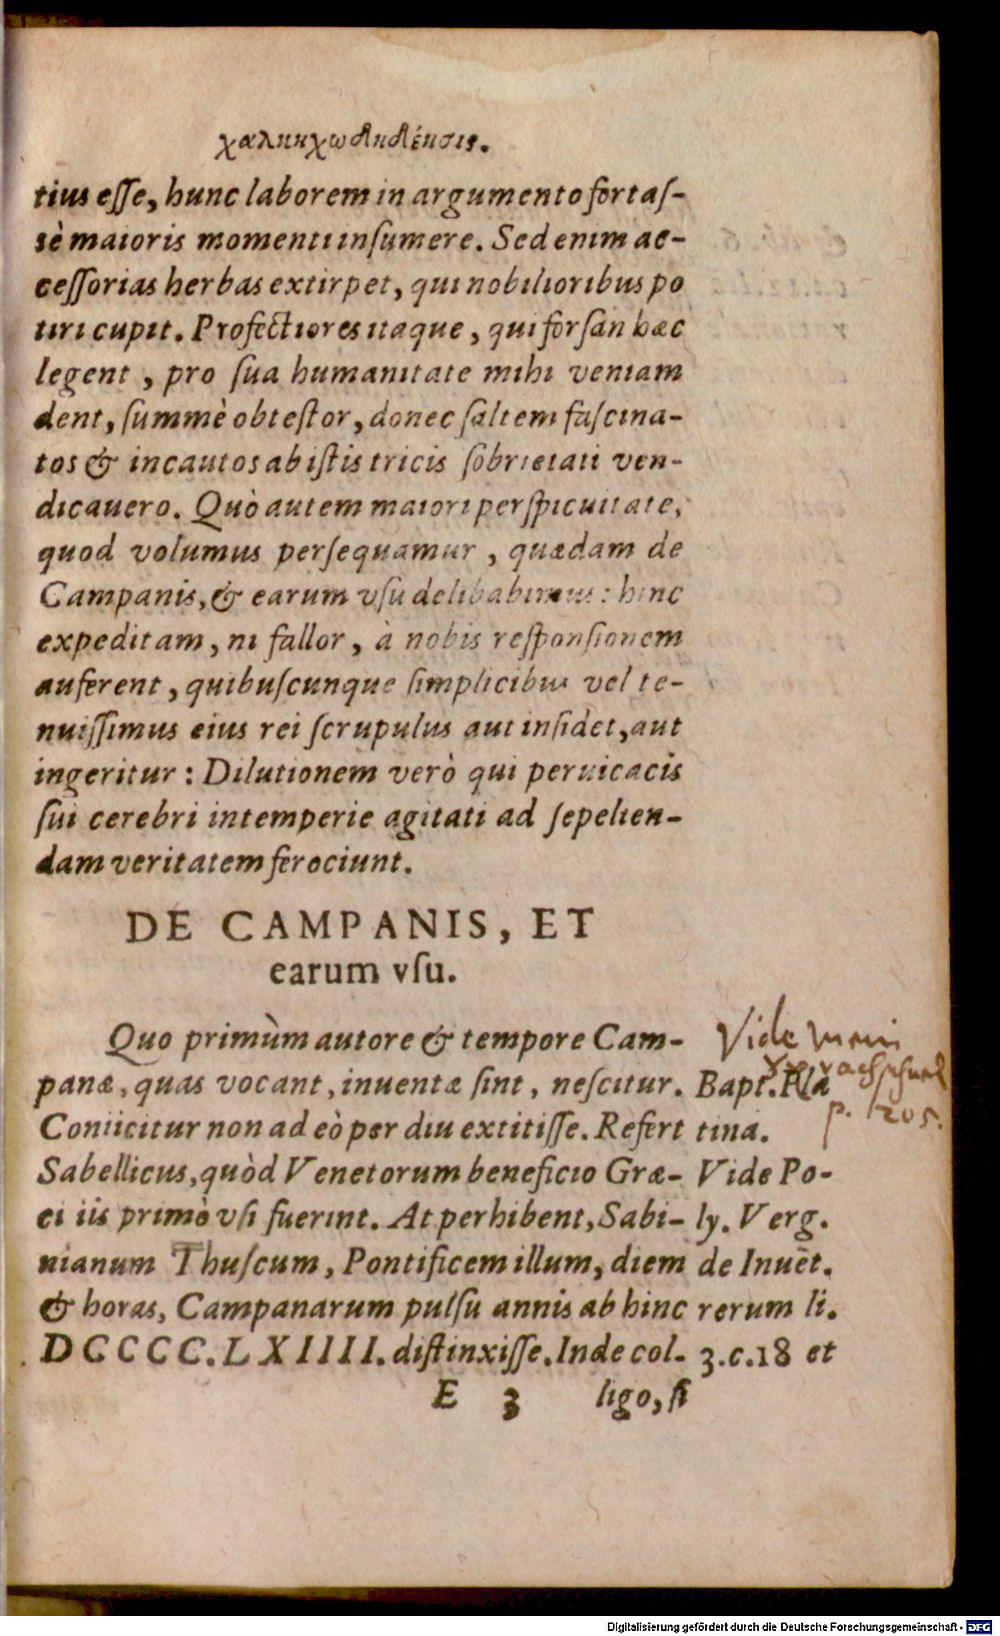 χαλκηχωδηδένσις.
tius eſſe, hunc laborem in argumento fortaſ-
sè maioris momenti inſumere. Sed enim ac-
ceſſorias herbas extirpet, qui nobilioribus po
tiri cupit. Profectiores itaque, qui forſan hæc
legent, pro ſua humanitate mihi veniam
dent, ſummè obteſtor, donec ſaltem faſcina-
tos & incautos ab iſtis tricis ſobrietati ven-
dicauero. Quò autem maiori perſpicuitate,
quod volumus perſequamur, quædam de
Campanis, & earum vſu delibabimus: hinc
expeditam, ni fallor, à nobis reſponſionem
auferent, quibuſcunque ſimplicibus vel te-
nuiſſimus eius rei ſcrupulus aut inſidet, aut
ingeritur: Dilutionem verò qui peruicacis
ſui cerebri intemperie agitati ad ſepelien-
dam veritatem ferociunt.
DE CAMPANIS, ET
earum vſu.
Quo primùm autore & tempore Cam-
panæ, quas vocant, inuentæ ſint, neſcitur.
Coniicitur non ad eò per diu extitiſſe. Refert
Sabellicus, quòd Venetorum beneficio Græ-
ci iis primò vſi fuerint. At perhibent, Sabi-
nianum Thuſcum, Pontificem illum, diem
& horas, Campanarum pulſu annis ab hinc
DCCCC.LXIIII. diſtinxiſſe. Inde col-
E 3 ligo, ſi
Vide
p. 1205.
Bapt. Pla
tina.
Vide Po-
ly. Verg.
de Inuēt.
rerum li.
3.c.18 et
Digitalisierung gefördert durch die Deutsche Forschungsgemeinschaft - DFG